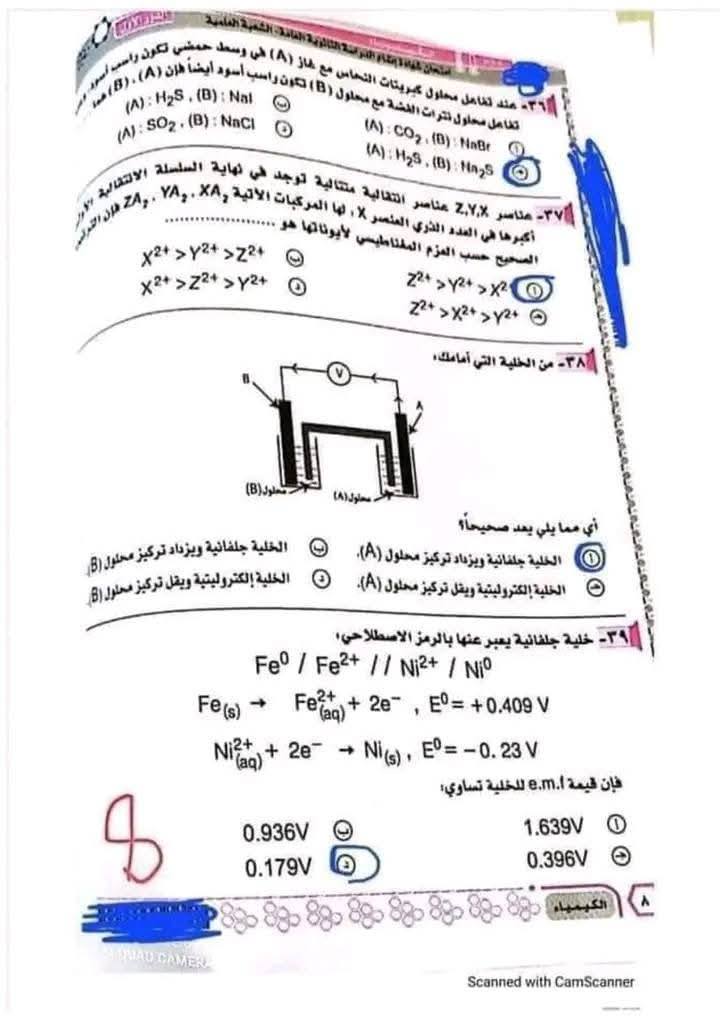 امتحان شهادة إتمام الدراسة الثانوية العامة - الشعبة العلمية
٣٦- عند تفاعل محلول كبريتات النحاس مع غاز (A) في وسط حمضي تكون راسب أسود
تفاعل محلول نترات الفضة مع محلول (B) تكون راسب أسود أيضاً فإن (A) ، (B) هما
أ (A) : CO2 , (B) : NaBr
ب (A) : H2S , (B) : NaI
ج (A) : H2S , (B) : Na2S
د (A) : SO2 , (B) : NaCl
٣٧- عناصر Z,Y,X عناصر انتقالية متتالية توجد في نهاية السلسلة الانتقالية
أكبرها في العدد الذري العنصر X ، لها المركبات الآتية ZA2 ، YA2 ، XA2 فإن
الصحيح حسب العزم المغناطيسي لأيوناتها هو ....................
أ Z2+ > Y2+ > X2
ب X2+ > Y2+ > Z2+
ج Z2+ > X2+ > Y2+
د X2+ > Z2+ > Y2+
٣٨- من الخلية التي أمامك:
V
B
A
محلول(B)
محلول(A)
أي مما يلي يعد صحيحاً؟
أ الخلية جلفانية ويزداد تركيز محلول (A).
ب الخلية جلفانية ويزداد تركيز محلول (B)
ج الخلية إلكتروليتية ويقل تركيز محلول (A).
د الخلية إلكتروليتية ويقل تركيز محلول (B)
٣٩- خلية جلفانية يعبر عنها بالرمز الاصطلاحي:
Fe0 / Fe2+ // Ni2+ / Ni0
Fe(s) → Fe2+(aq) + 2e− , E0 = +0.409 V
Ni2+(aq) + 2e− → Ni(s) , E0 = −0. 23 V
فإن قيمة e.m.f للخلية تساوي:
أ 1.639V
ب 0.936V
ج 0.396V
د 0.179V
8
٨ الكيمياء
QUAD CAMERA
Scanned with CamScanner